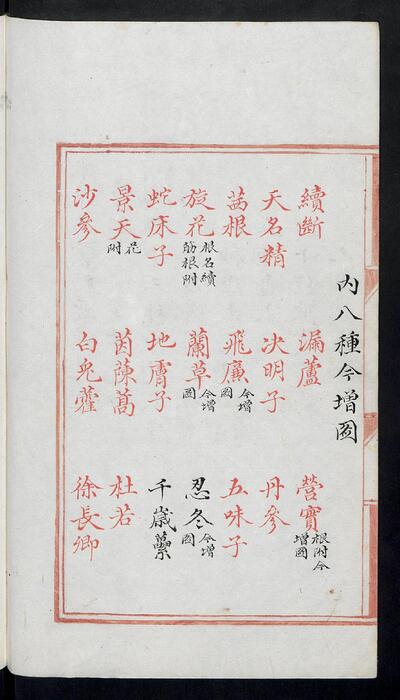 内八種今增圖
續斷 漏蘆 營實根附今增圖
天名精 决明子 丹參
茜根 飛廉今增圖 五味子
旋花根名續筋根附 蘭草今增圖 忍冬今增圖
蛇床子 地膚子 千歳蘽
景天花附 茵陳蒿 杜若
沙參 白兎藿 徐長卿